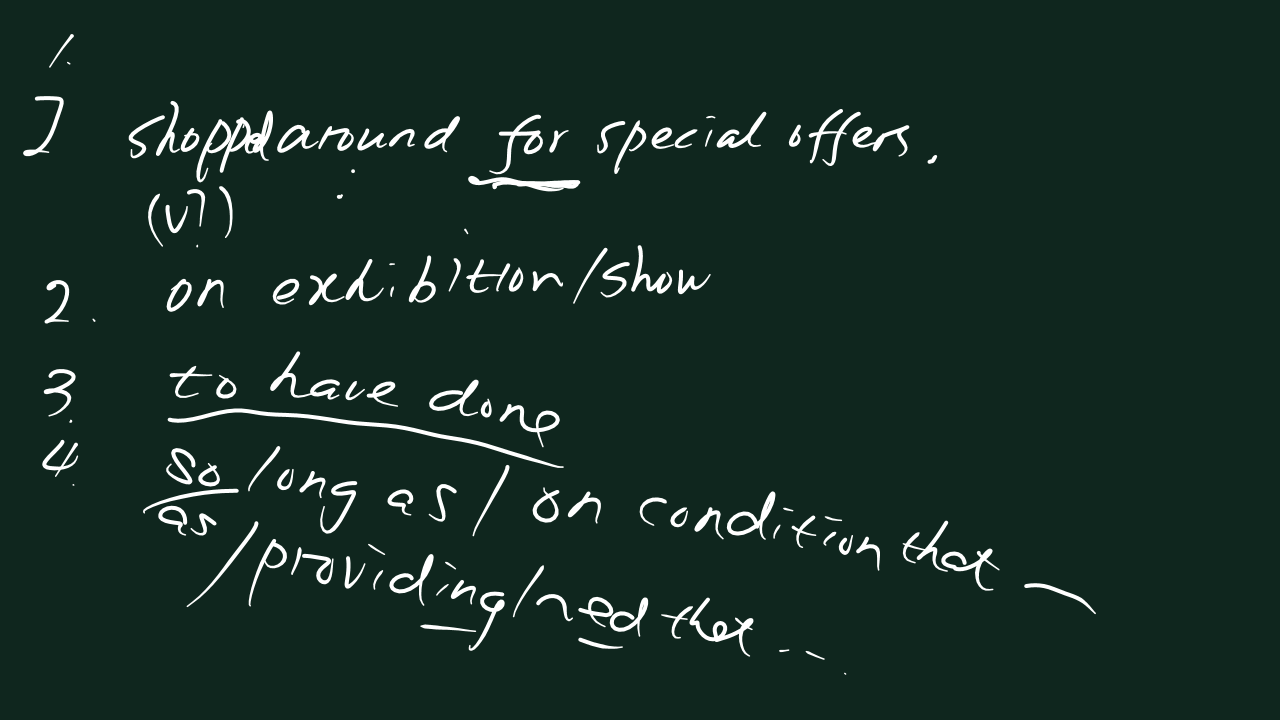 1.
I shopped around for special offers.
(vi)
2. on exhibition/show
3. to have done
4. so long as / on condition that ~
as
/providing/~ed that ...